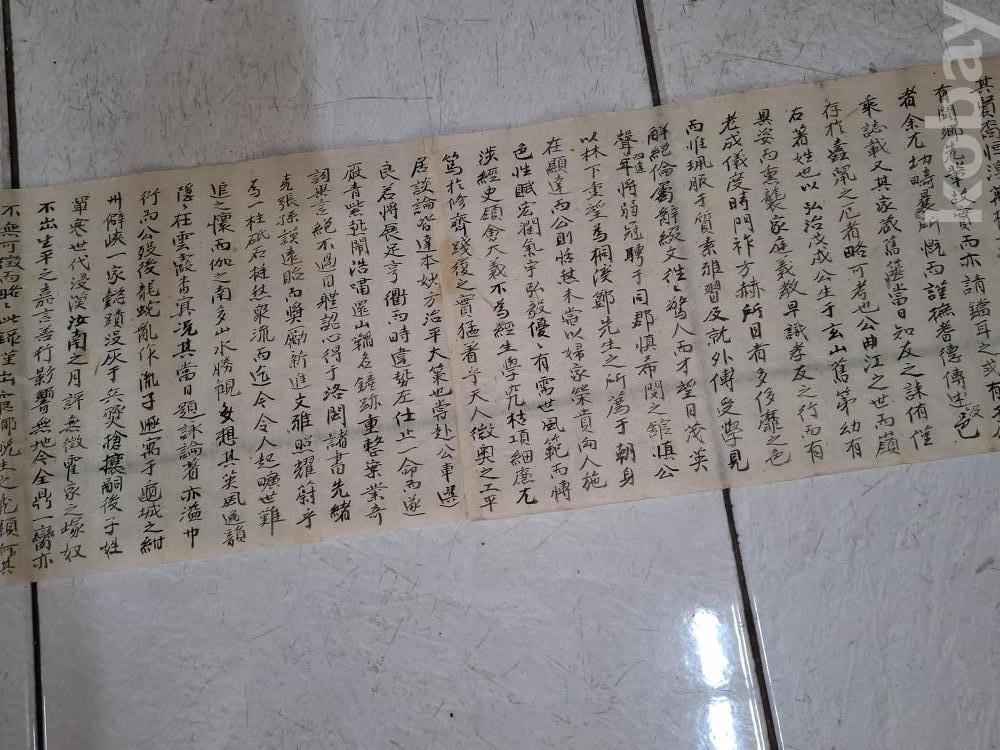 有聞鄉先輩故實而亦請鐫耳之或有
者余尤切疇曩所慨而謹撫耆德傳述邑
乘誌載又其家藏舊篋當日知友之誄侑僅
存於蠹蝕之厄者略可考也公曲江之世而嶺
右著姓也以弘治戊戌公生于玄山舊第幼有
異姿而重襲家庭義教早識孝友之行而有
老成儀度時門祚方赫所目者多侈靡之色
而惟珮服于質素雅習及就外傅受學見
解絕倫屬辭綴文往往驚人而才望日茂英
聲四達年將弱冠聘于同郡慎希閔之館慎公
以林下重望為桐溪鄭先生之所薦于朝身
在顯達而公則恬然未嘗以婦家榮貴向人施
色性賦宏濶氣宇弘毅優優有需世風範而博
涉經史領會大義不為經生學究枯項細廉尤
篤於修齊踐後之實猛着乎天人微奧之工平
居談論皆達本妙方治平大策也嘗赴公車選
良若將展足亨衢而時違蹔左仕止一命而遂
厭青紫熱鬧浩唱還山歛名鏟跡重整案業奇
詞異言絕不過目體認心得于洛閩諸書先緒
克張孫謨遠貽而獎勵新進文雅照耀蔚乎
為一柱砥石挺然衆流而迄今令人起曠世難
追之懷而伽之南多山水勝觀多想其英風逸韻
隱在雲霞杳冥況其當日題詠論著亦溢巾
衍而公歿後龍蛇亂作胤子避寓于邇城之紺
州僻峽一家懿蹟沒灰于兵燹搶攘嗣後子姓
單寒世代浸漠汝南之月評無徵霍家之塚奴
不出生平之嘉言善行影響無地今全鼎一臠亦
不無可徵而略此雖
kobay